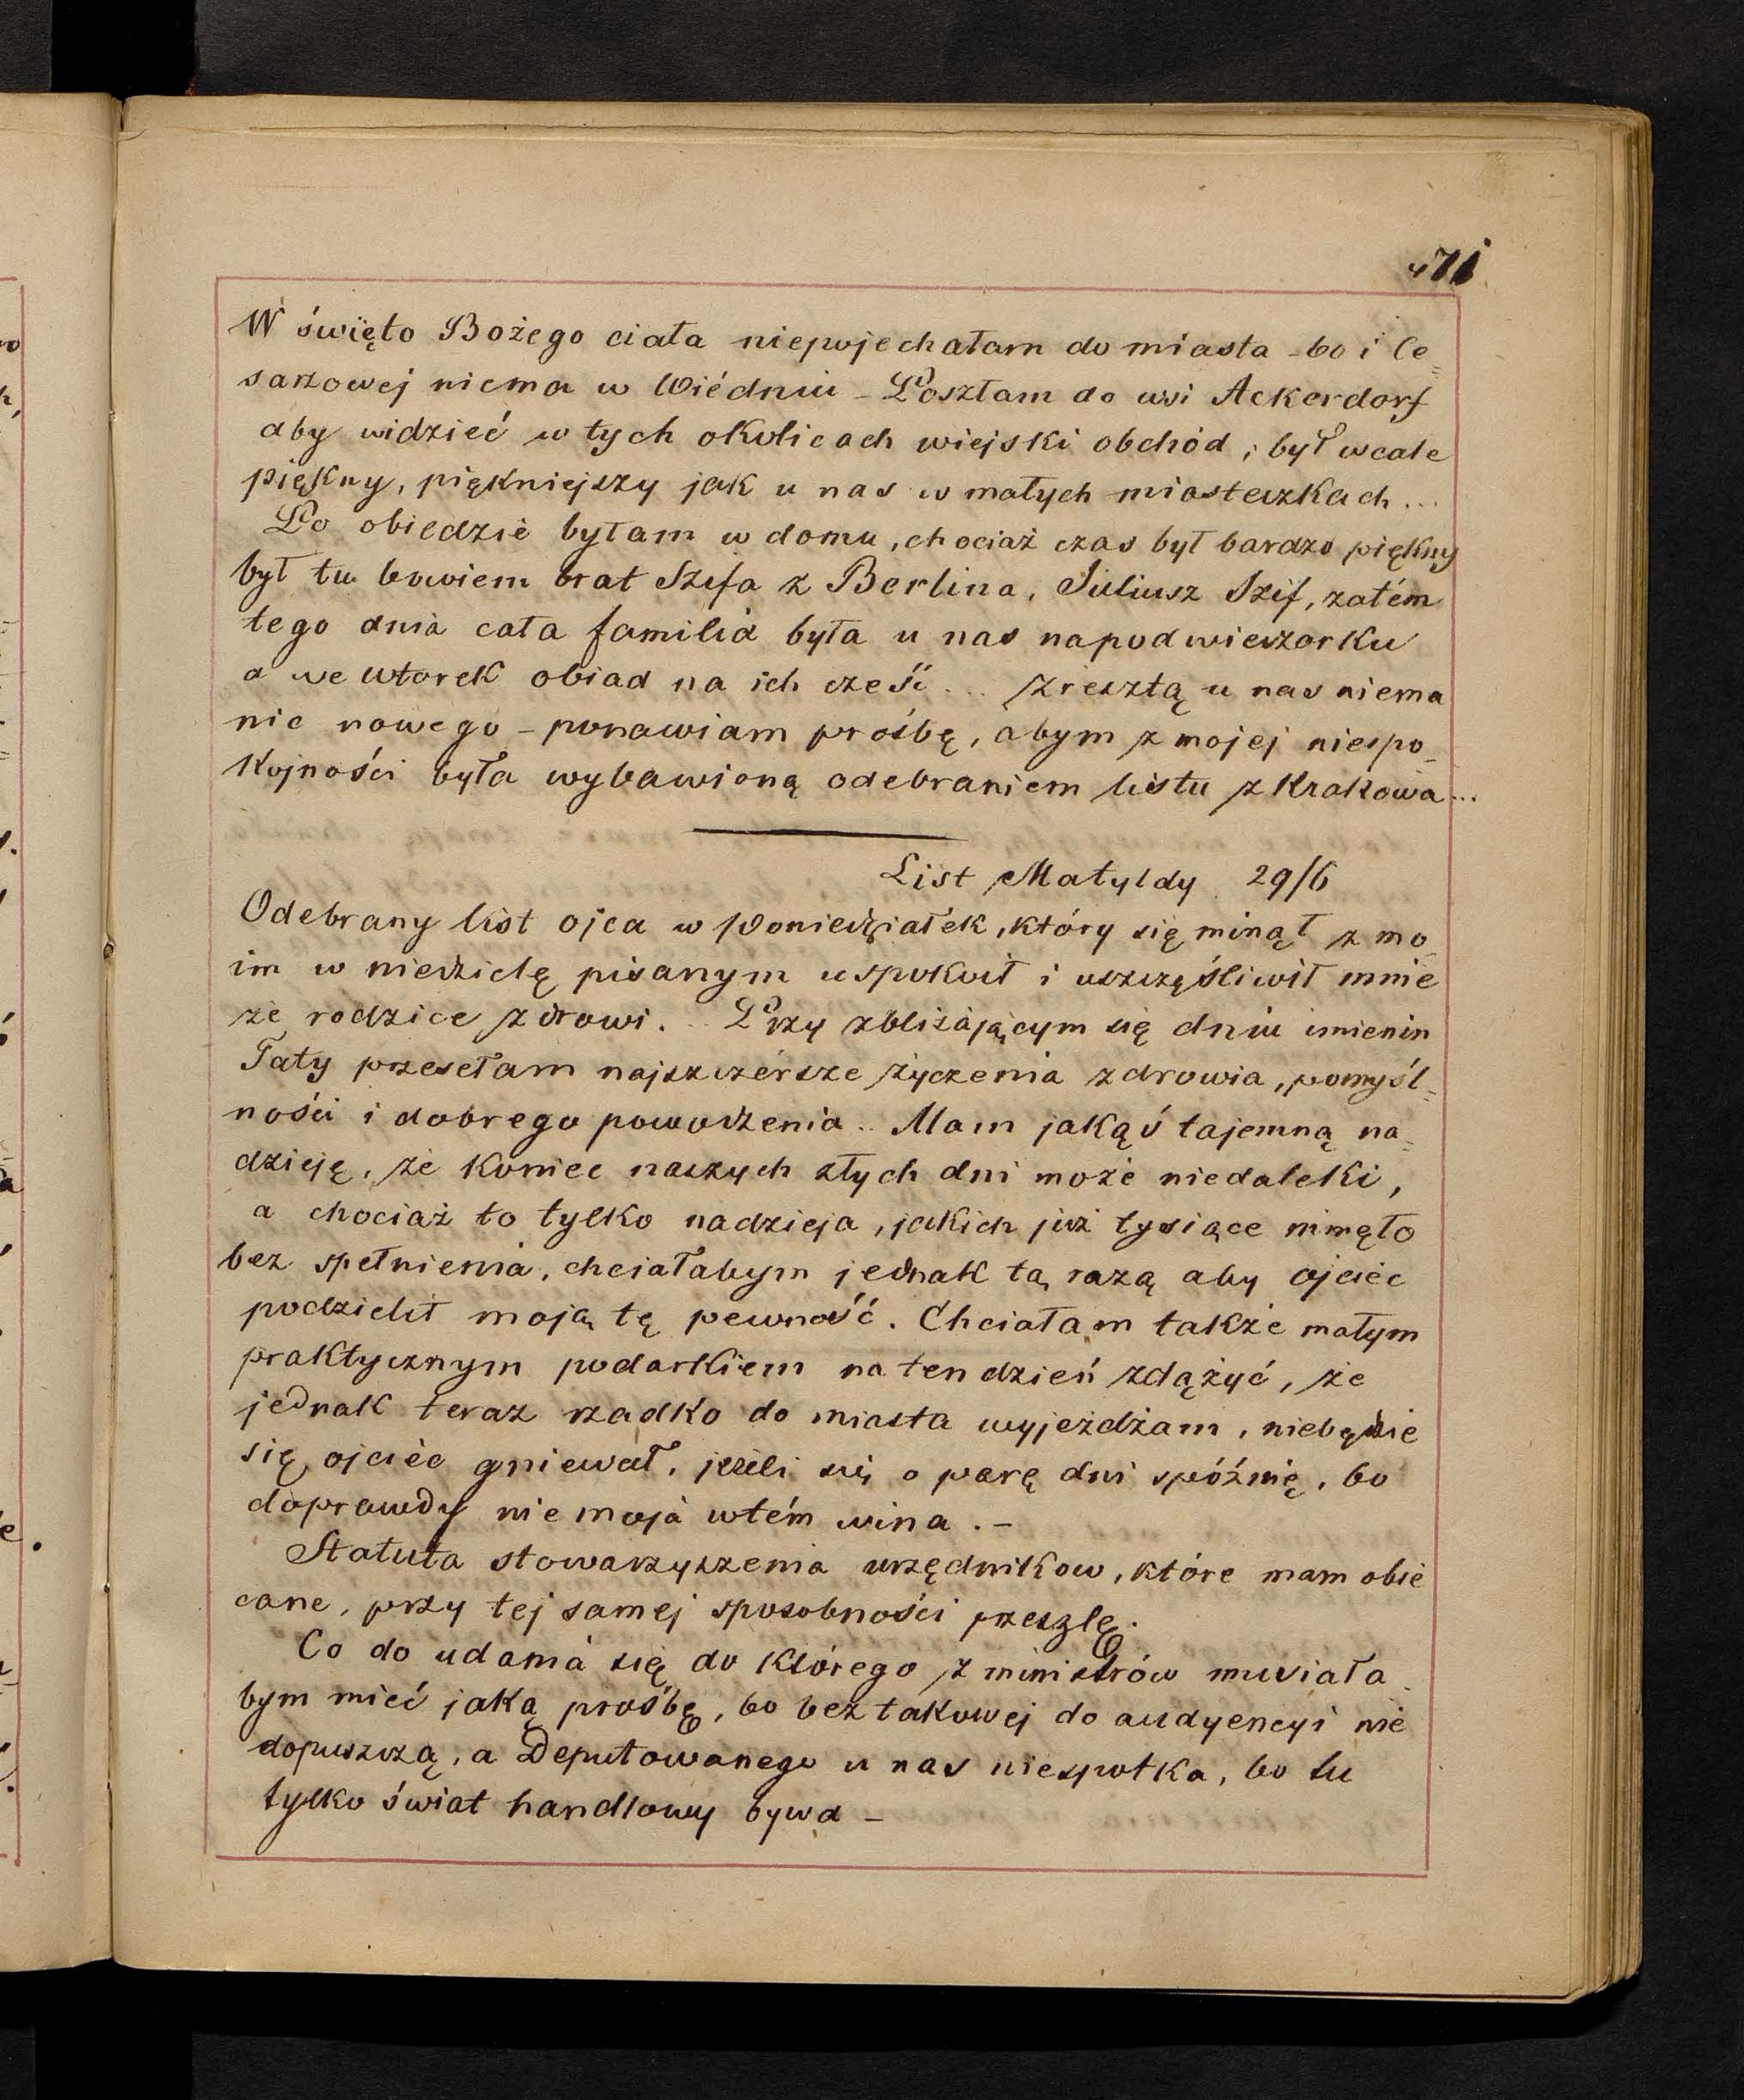 471
W święto Bożego ciała niepojechałam do miasta - bo i Ce=
sarzowej niema w Wiédniu - Poszłam do wsi Ackerdorf
aby widzieć w tych okolicach wiejski obchód, był wcale
piękny, piękniejszy jak u nas w małych miasteczkach...
Po obiedzie byłam w domu, chociaż czas był bardzo piękny
był tu bowiem brat Szifa z Berlina, Juliusz Szif, zatém
tego dnia cała familia była u nas napodwieczorku
a we wtorek obiad na ich cześć... zresztą u nas niema
nic nowego - ponawiam prośbę, abym z mojej niespo=
kojności była wybawioną odebraniem listu z Krakowa...
List Matyldy 29/6
Odebrany list ojca w Poniedziałek, który się minął z mo=
im w niedzielę pisanym uspokoił i uszczęśliwił mnie
że rodzice zdrowi... Przy zbliżającym się dniu imienin
Taty przesełam najszczérsze życzenia zdrowia, pomyśl=
ności i dobrego powodzenia.. Mam jakąś tajemną na=
dzieję, że koniec naszych złych dni może niedaleki,
a chociaż to tylko nadzieja, jakich już tysiące minęło
bez spełnienia, chciałabym jednak tą razą aby ojciec
podzielił moją tę pewność. Chciałam także małym
praktycznym podarkiem na ten dzień zdążyć, że
jednak teraz rzadko do miasta wyjeżdżam, niebędzie
się ojciec gniewał, jeżeli się o parę dni spóźnię, bo
doprawdy nie moja wtém wina. -
Statuta stowarzyszenia urzędnikow, które mam obie
cane, przy tej samej sposobności przeszlę.
Co do udania się do którego z ministrów musiała
bym mieć jaką prośbę, bo bez takowej do audyencyi nie
dopuszczą, a Deputowanego u nas niespotka, bo tu
tylko świat handlowy bywa -